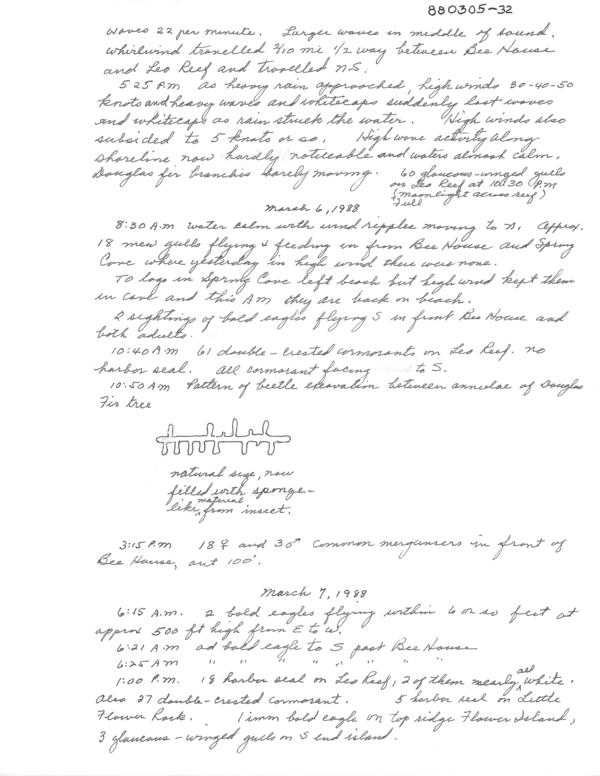 880305-32
waves 22 per minute. Larger waves in middle of sound.
Whirlwind travelled 2/10 mi 1/2 way between Bee House
and Leo Reef and travelled N.S.
5 25 P.M as heavy rain approached, high winds 30-40-50
knots and heavy waves and whitecaps suddenly lost waves
and whitecaps as rain struck the water. High winds also
subsided to 5 knots or so. High wave activity along
shoreline now hardly noticeable and waters almost calm.
Douglas fir branches barely moving. 60 glaucous-winged gulls
on Leo Reef at 10:30 P.M
(moonlight across reef)
Full
March 6, 1988
8:30 A.M water calm with wind ripples moving to N. Approx.
18 mew gulls flying & feeding in from Bee House and Spring
Cove where yesterday in high wind there were none.
TO logs in Spring Cove left beach but high wind kept them
in cove and this A.M they are back on beach.
2 sightings of bald eagles flying S in front Bee House and
both adults.
10:40 A.M 61 double-crested cormorants on Leo Reef. no
harbor seal. All cormorant facing to S.
10:50 A.M Pattern of beetle excavation between annulae of Douglas
Fir tree
natural size, now
filled with sponge-
like material from insect.
3:15 P.M 18♀ and 30♂ Common mergansers in front of
Bee House, out 100'.
March 7, 1988
6:15 A.M. 2 bald eagles flying within 6 or so feet at
approx 500 ft high from E to W.
6:21 A.M ad bald eagle to S past Bee House
6:25 A.M " " " " " " "
1:00 P.M. 18 harbor seal on Leo Reef, 2 of them nearly all white.
Also 27 double-crested cormorant. 5 harbor seal on Little
Flower Rock. 1 imm bald eagle on top ridge Flower Island,
3 glaucous-winged gulls on S end island.